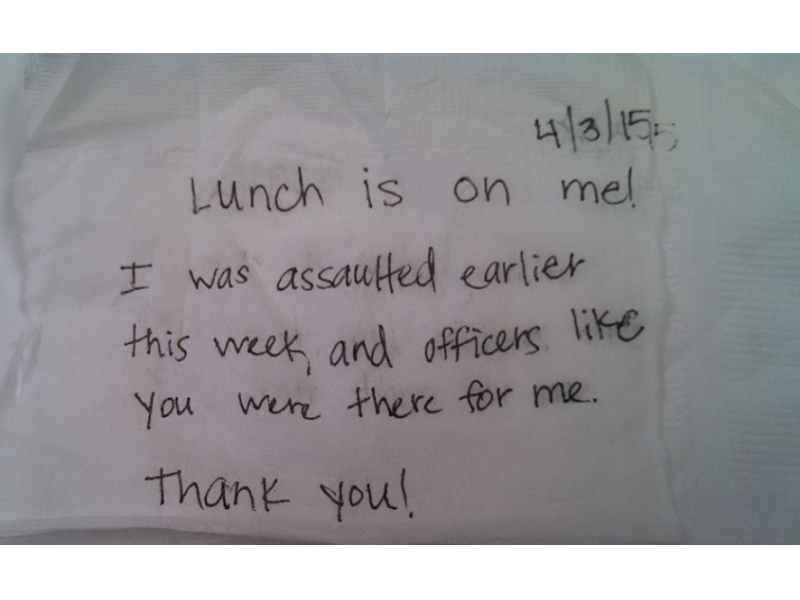 4/3/15
Lunch is on me!
I was assaulted earlier
this week, and officers like
you were there for me.
Thank you!